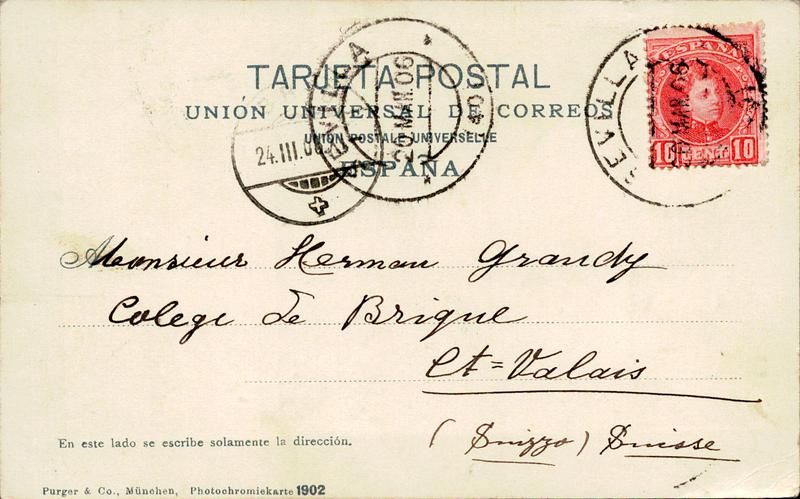 TARJETA POSTAL
UNIÓN UNIVERSAL DE CORREOS
UNION POSTALE UNIVERSELLE
ESPAÑA
SEVILLA
20 MAR 06
24.III.06
ESPAÑA
10 CENT. 10
SEVILLA
MAR 06
Monsieur Herman Grandy
Colege De Brigue
Ct=Valais
(Suizzo) Suisse
En este lado se escribe solamente la dirección.
Purger & Co., München, Photochromiekarte 1902